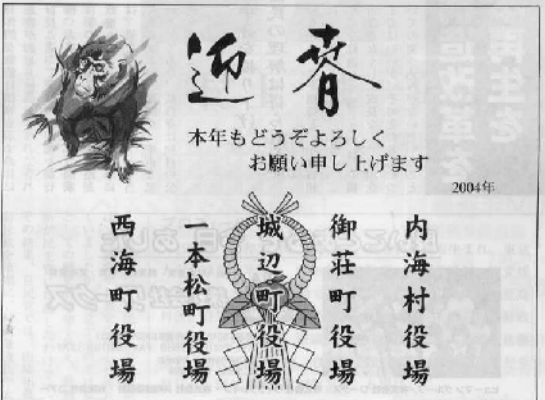 迎春
本年もどうぞよろしく
お願い申し上げます
2004年
内海村役場
御荘町役場
城辺町役場
一本松町役場
西海町役場